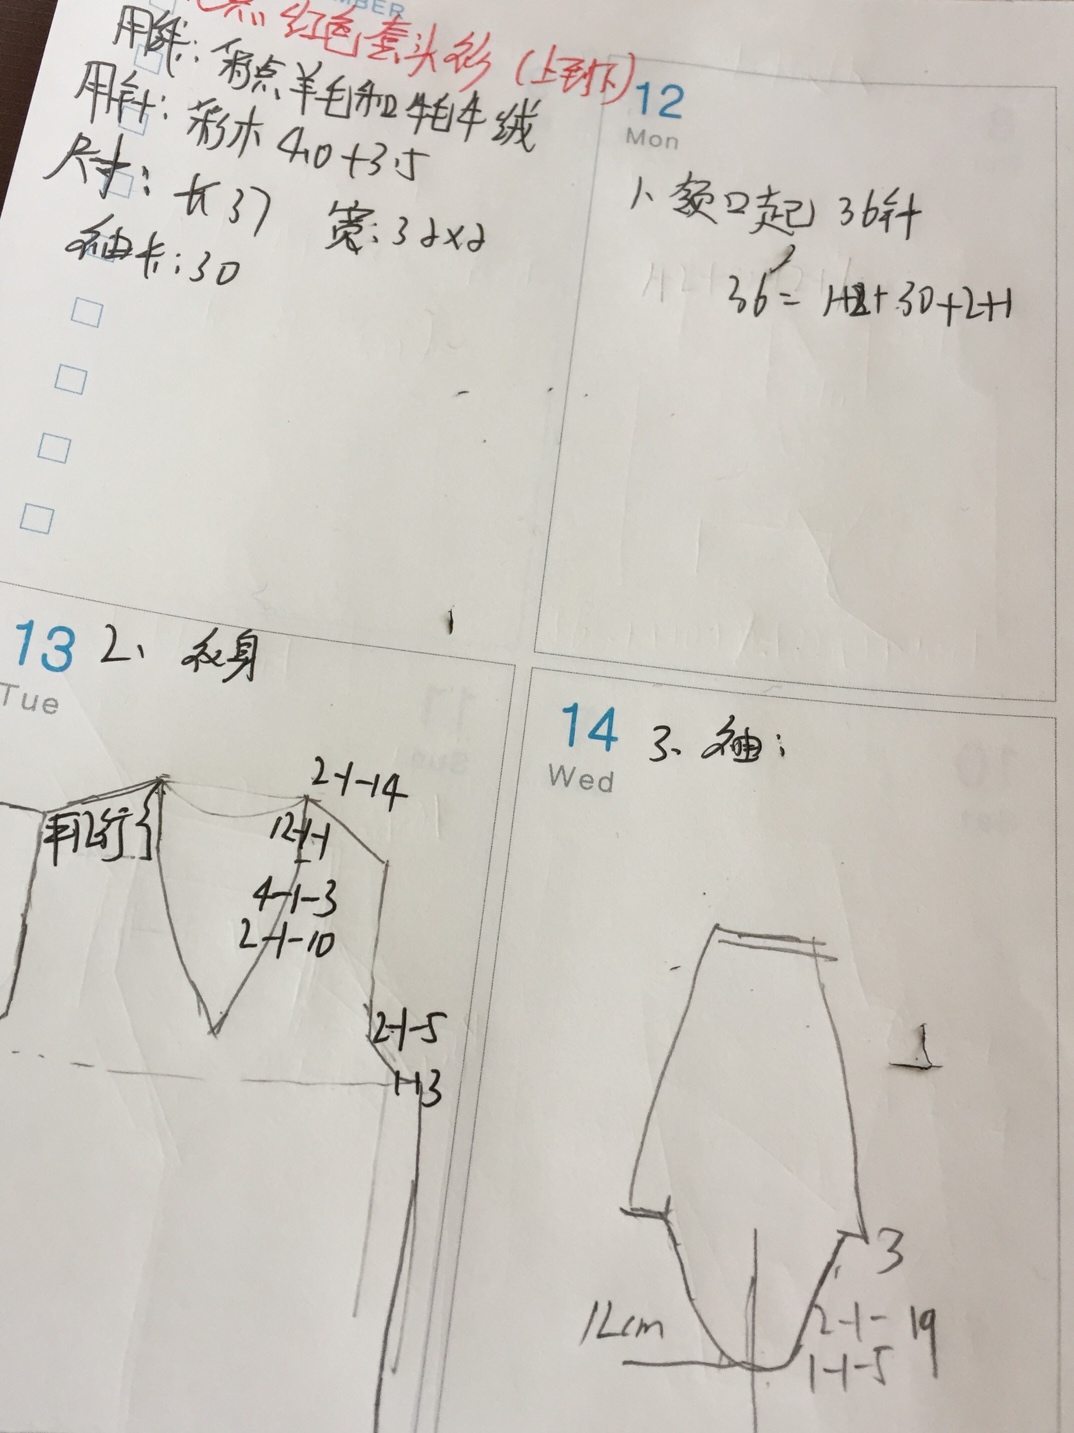 MBER
点红色套头衫(上到下)
用线:彩点羊毛和牦牛绒
用针:彩木 4.0+3.5
尺寸:长37 宽:32x2
袖长:30
12
Mon
1、领口起 36针
36= 1+2+30+2+1
13
Tue
2、衣身
2-1-14
平几行
12-1-1
4-1-3
2-1-10
2-1-5
1-13
14
Wed
3、袖:
1
3
12cm
2-1-19
1-1-5